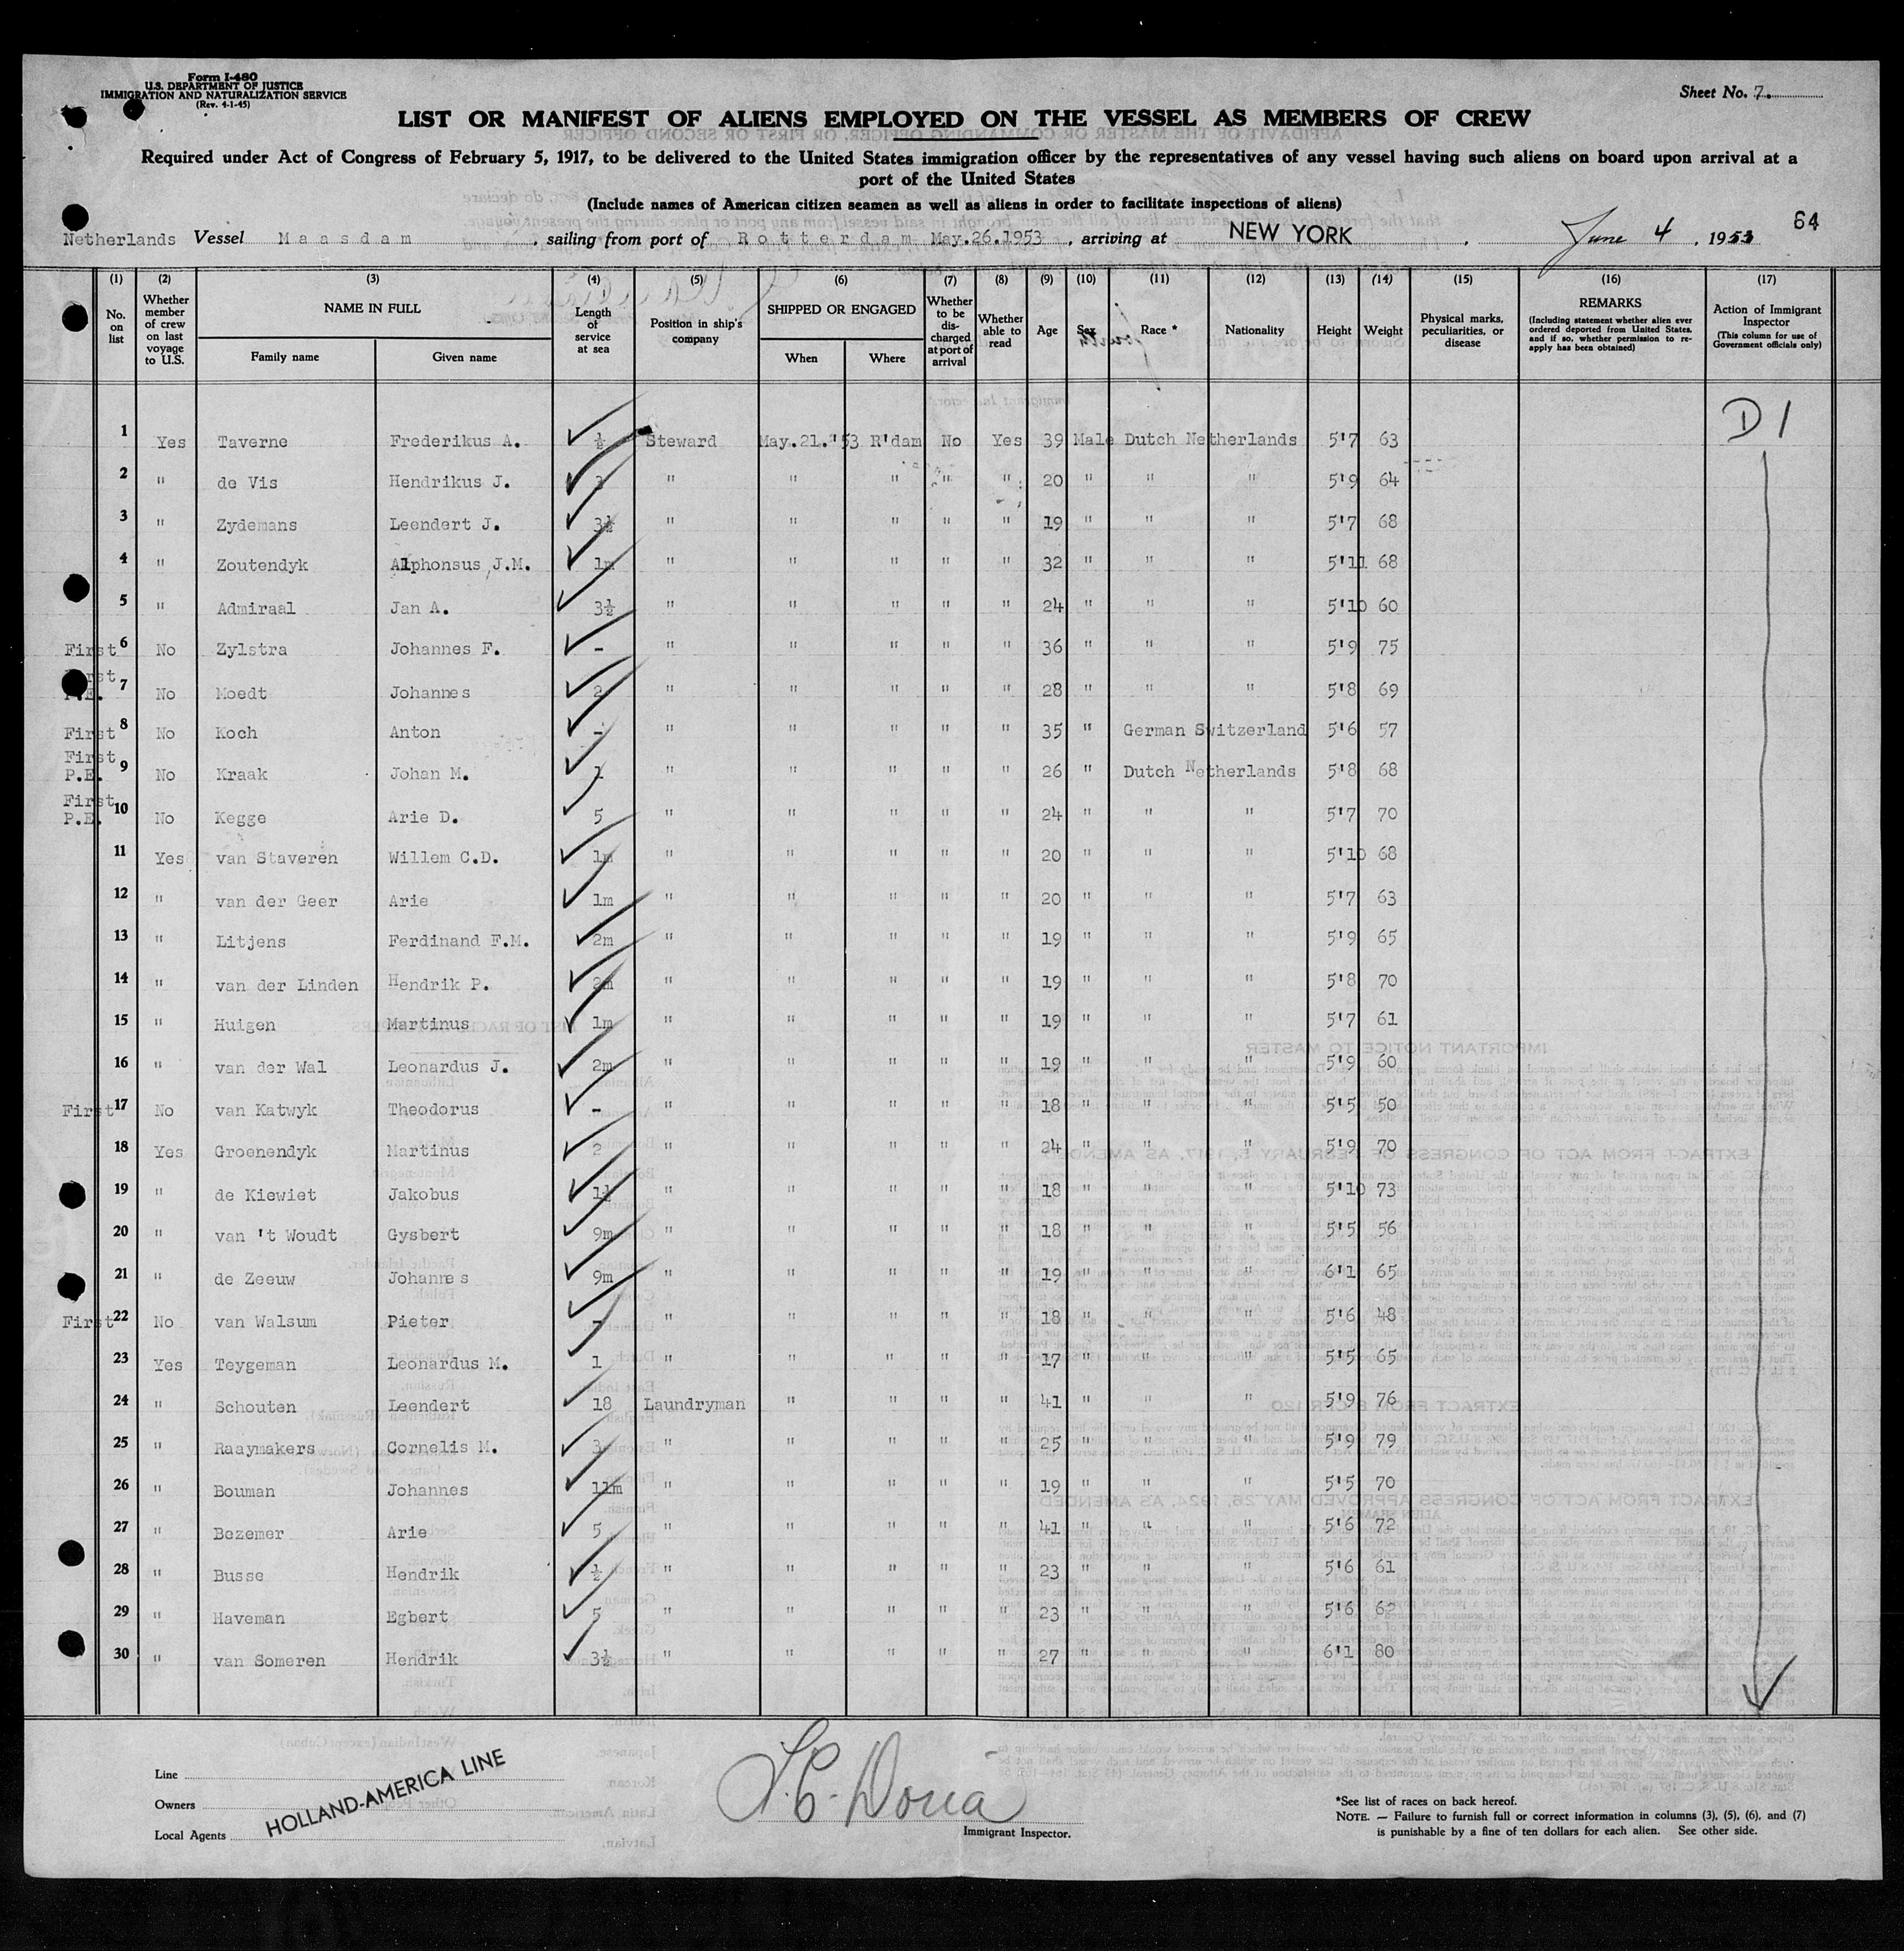 Form I-480
U.S. DEPARTMENT OF JUSTICE
IMMIGRATION AND NATURALIZATION SERVICE
(Rev. 4-1-45)
Sheet No. 7.
LIST OR MANIFEST OF ALIENS EMPLOYED ON THE VESSEL AS MEMBERS OF CREW
Required under Act of Congress of February 5, 1917, to be delivered to the United States immigration officer by the representatives of any vessel having such aliens on board upon arrival at a
port of the United States
(Include names of American citizen seamen as well as aliens in order to facilitate inspections of aliens)
64
Netherlands Vessel Maasdam, sailing from port of Rotterdam May.26.1953, arriving at NEW YORK, June 4, 1953
(1) (2) (3) (4) (5) (6) (7) (8) (9) (10) (11) (12) (13) (14) (15) (16) (17)
No. on list
Whether member of crew on last voyage to U.S.
NAME IN FULL
Family name Given name
Length of service at sea
Position in ship's company
SHIPPED OR ENGAGED
When Where
Whether to be discharged at port of arrival
Whether able to read
Age
Sex
Race *
Nationality
Height
Weight
Physical marks, peculiarities, or disease
REMARKS
(Including statement whether alien ever ordered deported from United States, and if so, whether permission to re-apply has been obtained)
Action of Immigrant Inspector
(This column for use of Government officials only)
D1
1 Yes Taverne Frederikus A. ½ Steward May.21.'53 R'dam No Yes 39 Male Dutch Netherlands 5'7 63
2 " de Vis Hendrikus J. " " " " " 20 " " " 5'9 64
3 " Zydemans Leendert J. 3½ " " " " " 19 " " " 5'7 68
4 " Zoutendyk Alphonsus J.M. 1m " " " " " 32 " " " 5'11 68
5 " Admiraal Jan A. 3½ " " " " " 24 " " " 5'10 60
First 6 No Zylstra Johannes F. - " " " " " 36 " " " 5'9 75
First P.E. 7 No Moedt Johannes 2 " " " " " 28 " " " 5'8 69
First 8 No Koch Anton - " " " " " 35 " German Switzerland 5'6 57
First P.E. 9 No Kraak Johan M. 1 " " " " " 26 " Dutch Netherlands 5'8 68
First P.E. 10 No Kegge Arie D. 5 " " " " " 24 " " " 5'7 70
11 Yes van Staveren Willem C.D. 1m " " " " " 20 " " " 5'10 68
12 " van der Geer Arie 1m " " " " " 20 " " " 5'7 63
13 " Litjens Ferdinand F.M. 2m " " " " " 19 " " " 5'9 65
14 " van der Linden Hendrik P. 2m " " " " " 19 " " " 5'8 70
15 " Huigen Martinus 1m " " " " " 19 " " " 5'7 61
16 " van der Wal Leonardus J. 2m " " " " " 19 " " " 5'9 60
First 17 No van Katwyk Theodorus - " " " " " 18 " " " 5'5 50
18 Yes Groenendyk Martinus 2 " " " " " 24 " " " 5'9 70
19 " de Kiewiet Jakobus 1½ " " " " " 18 " " " 5'10 73
20 " van 't Woudt Gysbert 9m " " " " " 18 " " " 5'5 56
21 " de Zeeuw Johannes 9m " " " " " 19 " " " 6'1 65
First 22 No van Walsum Pieter - " " " " " 18 " " " 5'6 48
23 Yes Teygeman Leonardus M. 1 " " " " " 17 " " " 5'5 65
24 " Schouten Leendert 18 Laundryman " " " " 41 " " " 5'9 76
25 " Raaymakers Cornelis M. 3 " " " " " 25 " " " 5'9 79
26 " Bouman Johannes 11m " " " " " 19 " " " 5'5 70
27 " Bezemer Arie 5 " " " " " 41 " " " 5'6 72
28 " Busse Hendrik ½ " " " " " 23 " " " 5'6 61
29 " Haveman Egbert 5 " " " " " 23 " " " 5'6 62
30 " van Someren Hendrik 3½ " " " " " 27 " " " 6'1 80
Line
Owners
Local Agents
HOLLAND-AMERICA LINE
Immigrant Inspector.
*See list of races on back hereof.
NOTE. — Failure to furnish full or correct information in columns (3), (5), (6), and (7)
is punishable by a fine of ten dollars for each alien. See other side.